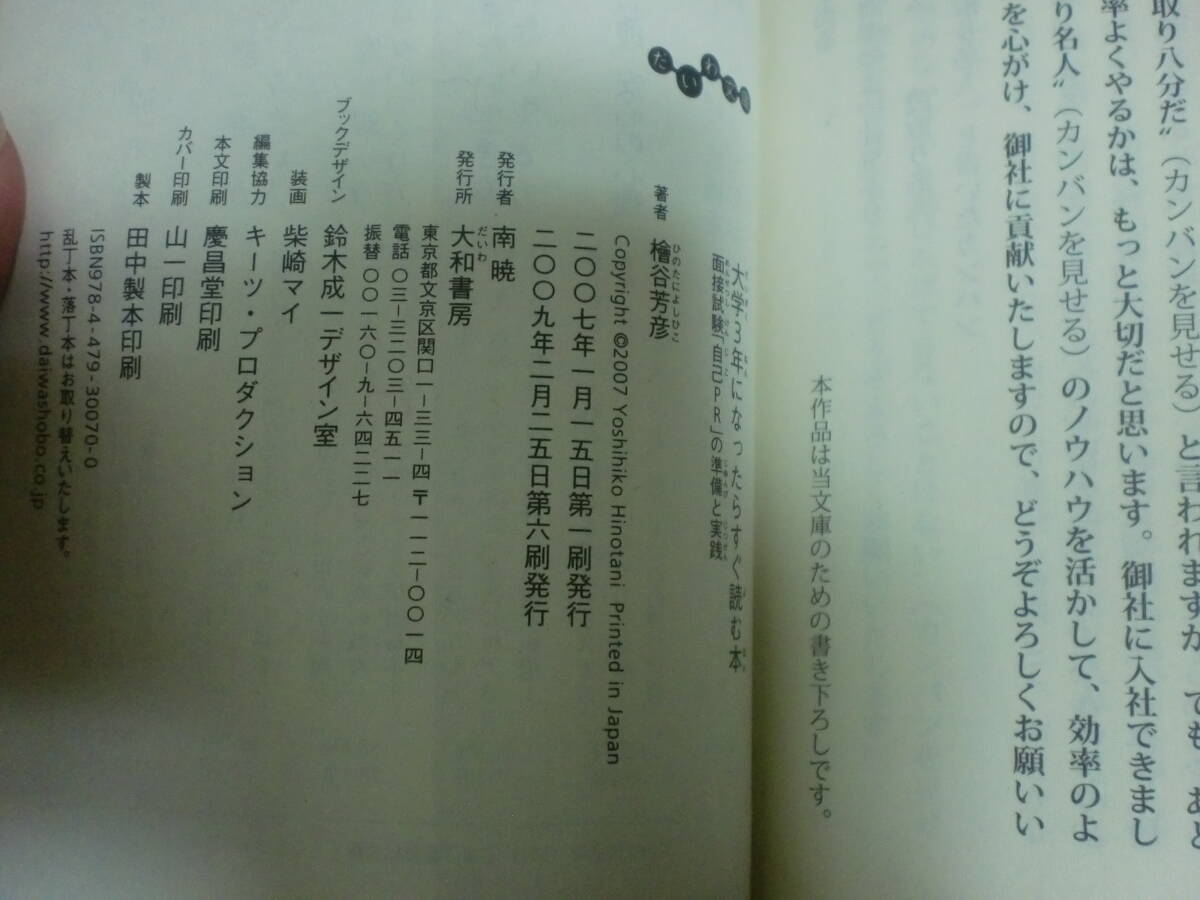 取り八分だ〟（カンバンを見せる）と言われますが、でも、あと
率よくやるかは、もっと大切だと思います。御社に入社できまし
り名人〟（カンバンを見せる）のノウハウを活かして、効率のよ
を心がけ、御社に貢献いたしますので、どうぞよろしくお願いい
本作品は当文庫のための書き下ろしです。
だいわ文
大学3年になったらすぐ読む本
面接試験「自己PR」の準備と実践
著者 檜谷芳彦
ひのたによしひこ
Copyright ©2007 Yoshihiko Hinotani Printed in Japan
二〇〇七年一月一五日第一刷発行
二〇〇九年二月二五日第六刷発行
発行者 南 暁
発行所 大和書房
だいわ
東京都文京区関口一−三三−四 〒一一二−〇〇一四
電話 〇三−三二〇三−四五一一
振替 〇〇一六〇−九−六四二二七
ブックデザイン 鈴木成一デザイン室
装画 柴崎マイ
編集協力 キーツ・プロダクション
本文印刷 慶昌堂印刷
カバー印刷 山一印刷
製本 田中製本印刷
ISBN978-4-479-30070-0
乱丁本・落丁本はお取り替えいたします。
http://www.daiwashobo.co.jp